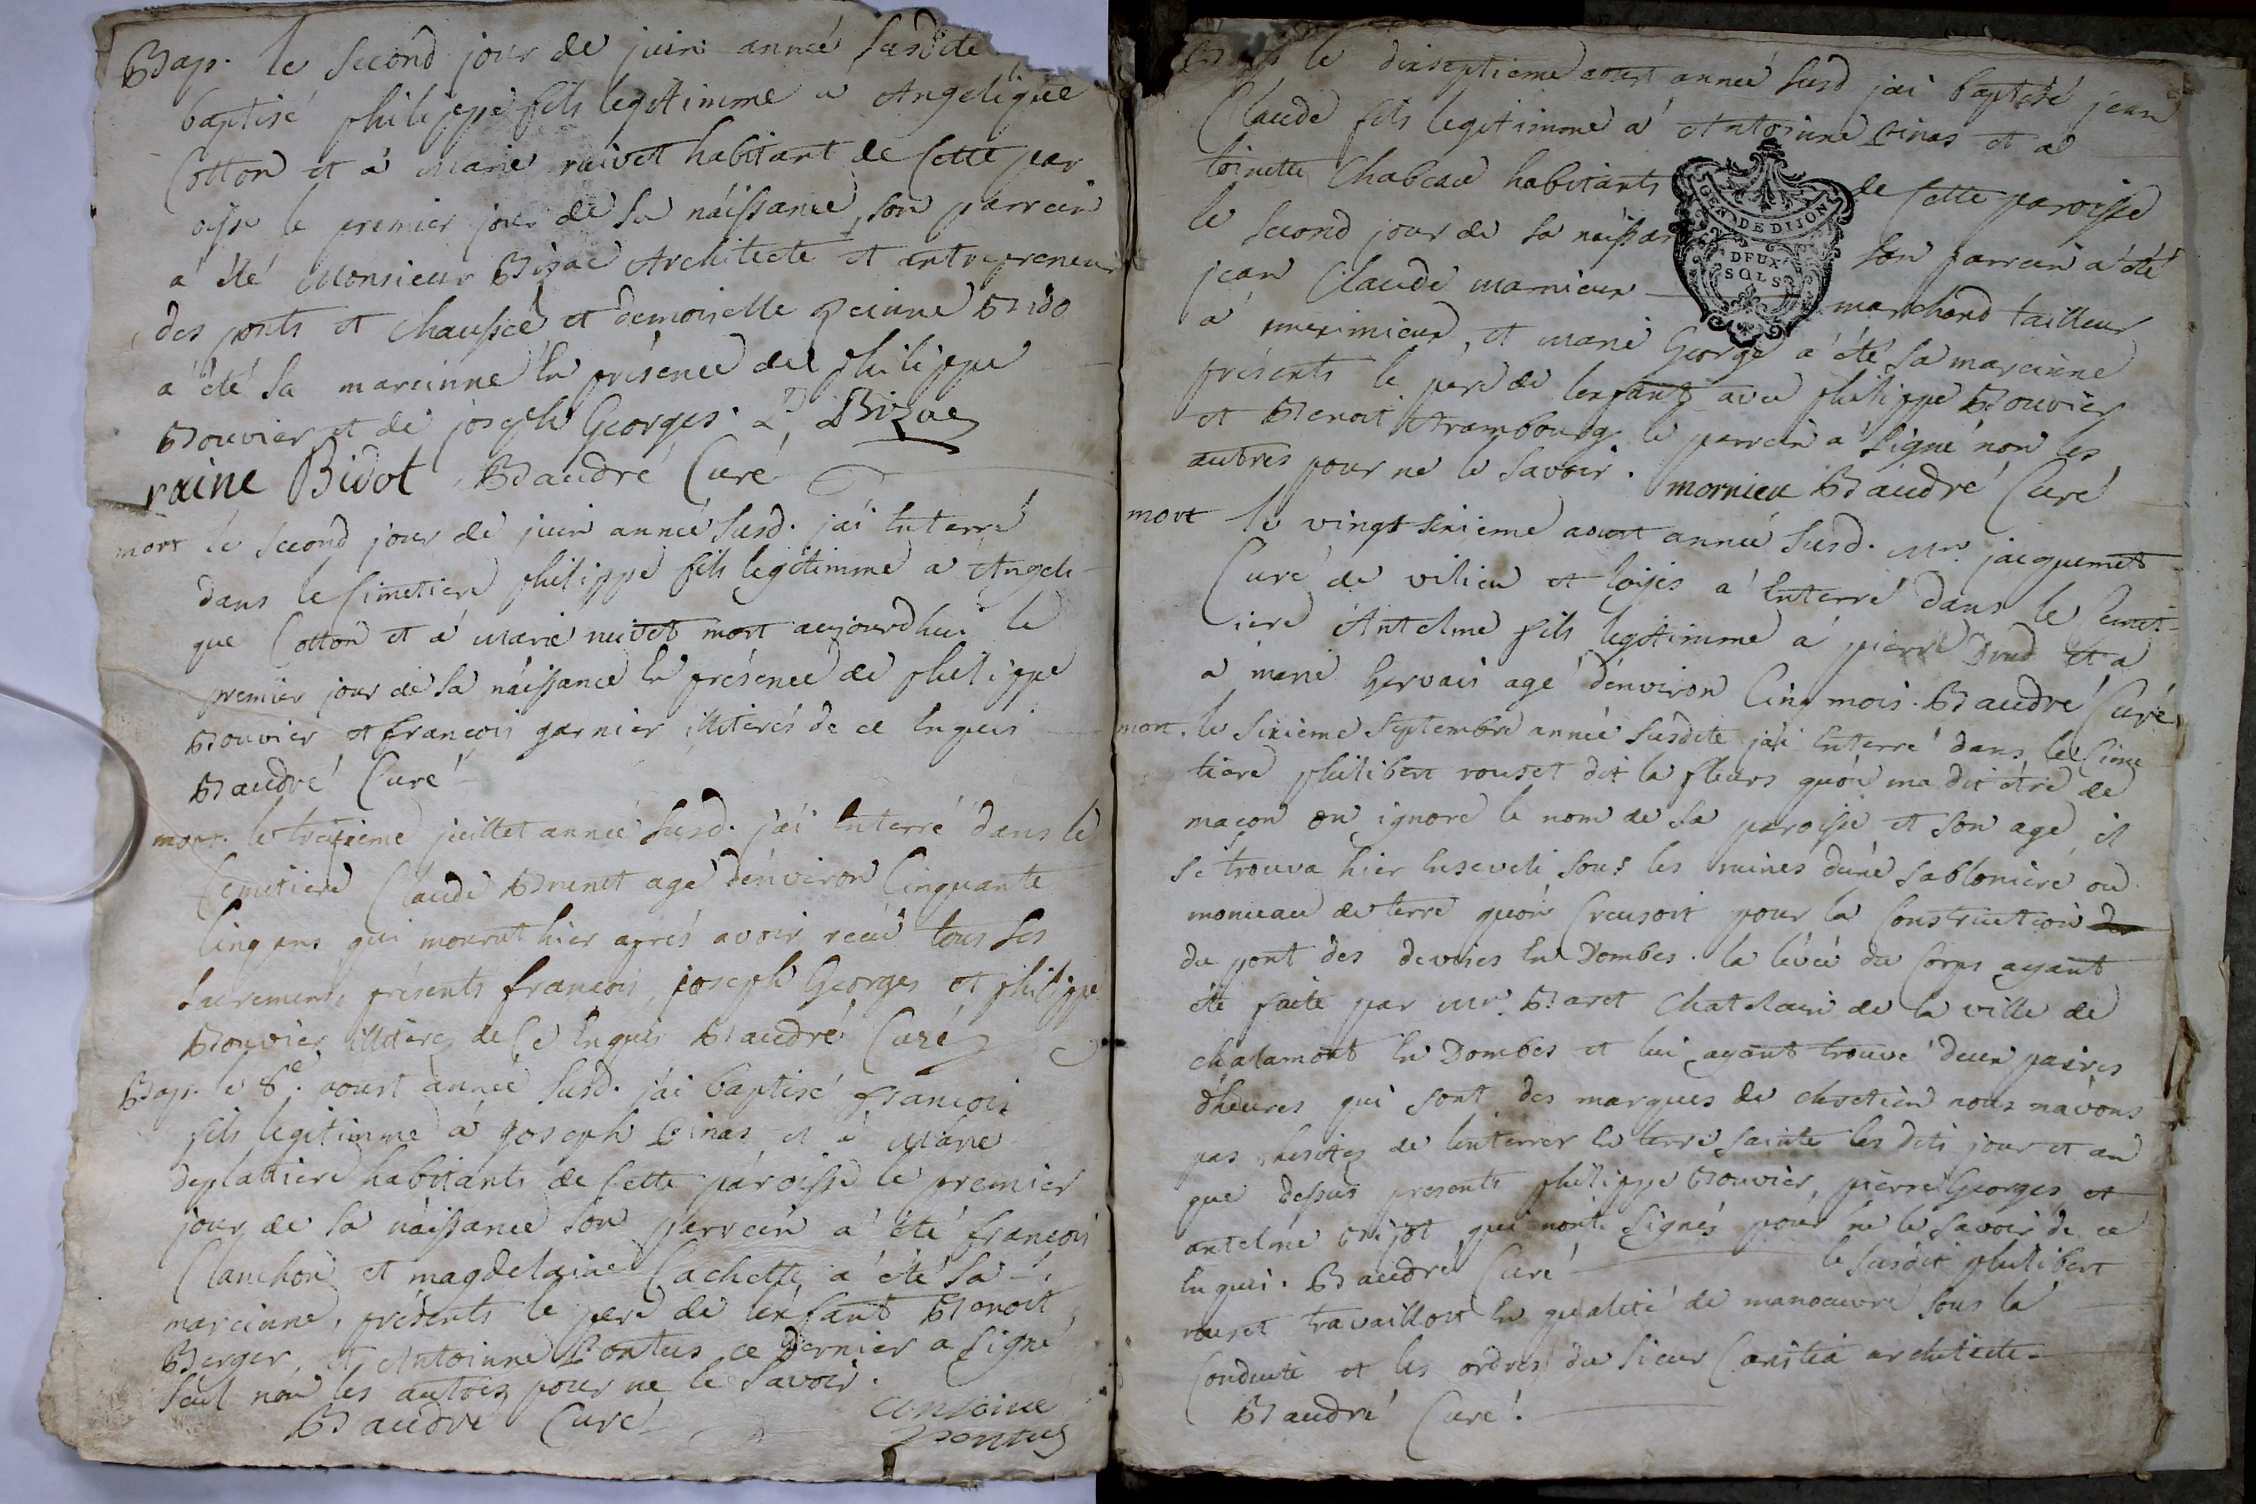 Bap. le second jour de juin année susdite
baptisé philippe fils legitimme a Angelique
Cotton et á Marie nuivet habitant de Cette par
oisse le premier jour de sa náissance, son parrein
a été Monsieur Bizac Architecte et entrepreneur
des ponts et chaussée et demoiselle reinne Bido
a été sa mareinne En présence de philippe
Bouvier et de joseph Georges. Bizac
raine Bidot Baudré Curé
mort le second jour de juin année susd. j'ai Enterré
dans le Cimetiere philippe fils legitimme a Angeli-
que Cotton et a' Marie nuivet mort aujourdhui le
premier jour de sa náissance En présence de philippe
Bouvier et francois garnier illiterés de ce Enquis
Baudré Curé
mort. le treisieme juillet année susd. j'ai Enterré dans le
Cemetiere Claude Brunet agé d'environ Cinquante
Cinq ans qui mourut hier aprés avoir recu tous ses
sacrements présents francois, joseph Georges et philippe
Bouvier illiterez de Ce Enquis Baudré Curé
Bap. le 8e. aoust année susd. j'ai baptisé francois
fils legitimme á joseph Pinas et á Marie
deplattiere habitants de Cette paroisse le premier
jour de sa náissance son parrein a été francois
Clanchon et magdelaine Cachette a été sa
mareinne, présents le pere de l'enfant Benoit
Berger, et Antoinne Pontus ce dernier a signé
seul non les autres pour ne le savoir.
Baudré Curé antoine
pontus
le dixseptieme aoust année susd j'ai baptisé jean
Claude fils legitimme á Antoinne Pinas et a
toinette Chabeau habitants de Cette paroisse
GEN. DE DIJON
DEUX
SOLS
le second jour de sa naissan son parrein a été
jean Claude marnieux marchand tailleur
á meximieux, et marie George a été sa mareinne
présents le pere de l'enfant avec philippe Bouvier
et Benoit Arambourg le parrein a signé non les
autres pour ne le savoir. mornieu Baudré Curé
mort le vingt sixieme aoust année susd. Mr. jacquemet
Curé de vilieu et loijes a Enterré dans le Cimet-
iere Antelme fils legitimme á pierre Drud et a
a' marie Gervais agé d'environ Cinq mois. Baudré Curé
mort. le sixieme septembre année susdite j'ai Enterré dans le Cime
tiere philibert rouset dit la fleurs qu'on ma dit être de
macon on ignore le nom de sa paroisse et son age, il
se trouva hier Enseveli sous les ruines dune sabloniere ou
monceau de terre qu'on Creusoit pour la Construction
du pont des devises En Dombes. la lévée du Corps ayant
été faite par Mr. Baret Chatelain de la ville de
chalamont En Dombes et lui ayant trouvé deux paires
d'heures qui sont des marques de chretien nous n'avons
pas hesitez de l'enterrer En terre sainte les dits jour et an
que dessus presents philippe Bouvier, pierre Georges et
antelme brijot qui nont signés pour ne le savoir de ce
Enquis. Baudré Curé le susdit philibert
rouset travailloit En qualité de manoeuvre sous la
Conduite et les ordres du sieur Caristia architecte.
Baudré Curé.